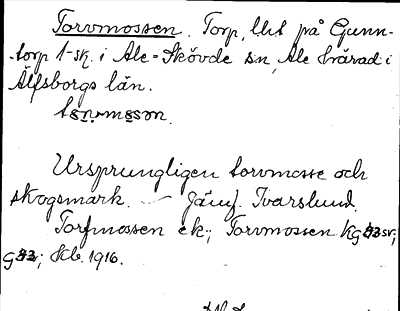 Torvmossen. Torp, lht på Gunn-
torp 1 sk. i Ale-Skövde sn, Ale härad i
Älfsborgs län.
Ursprungligen torvmosse och
skogsmark. — Jämf. Ivarslund.
Torfmossen ek.; Torvmossen Kg sr;
g; Kb. 1916.